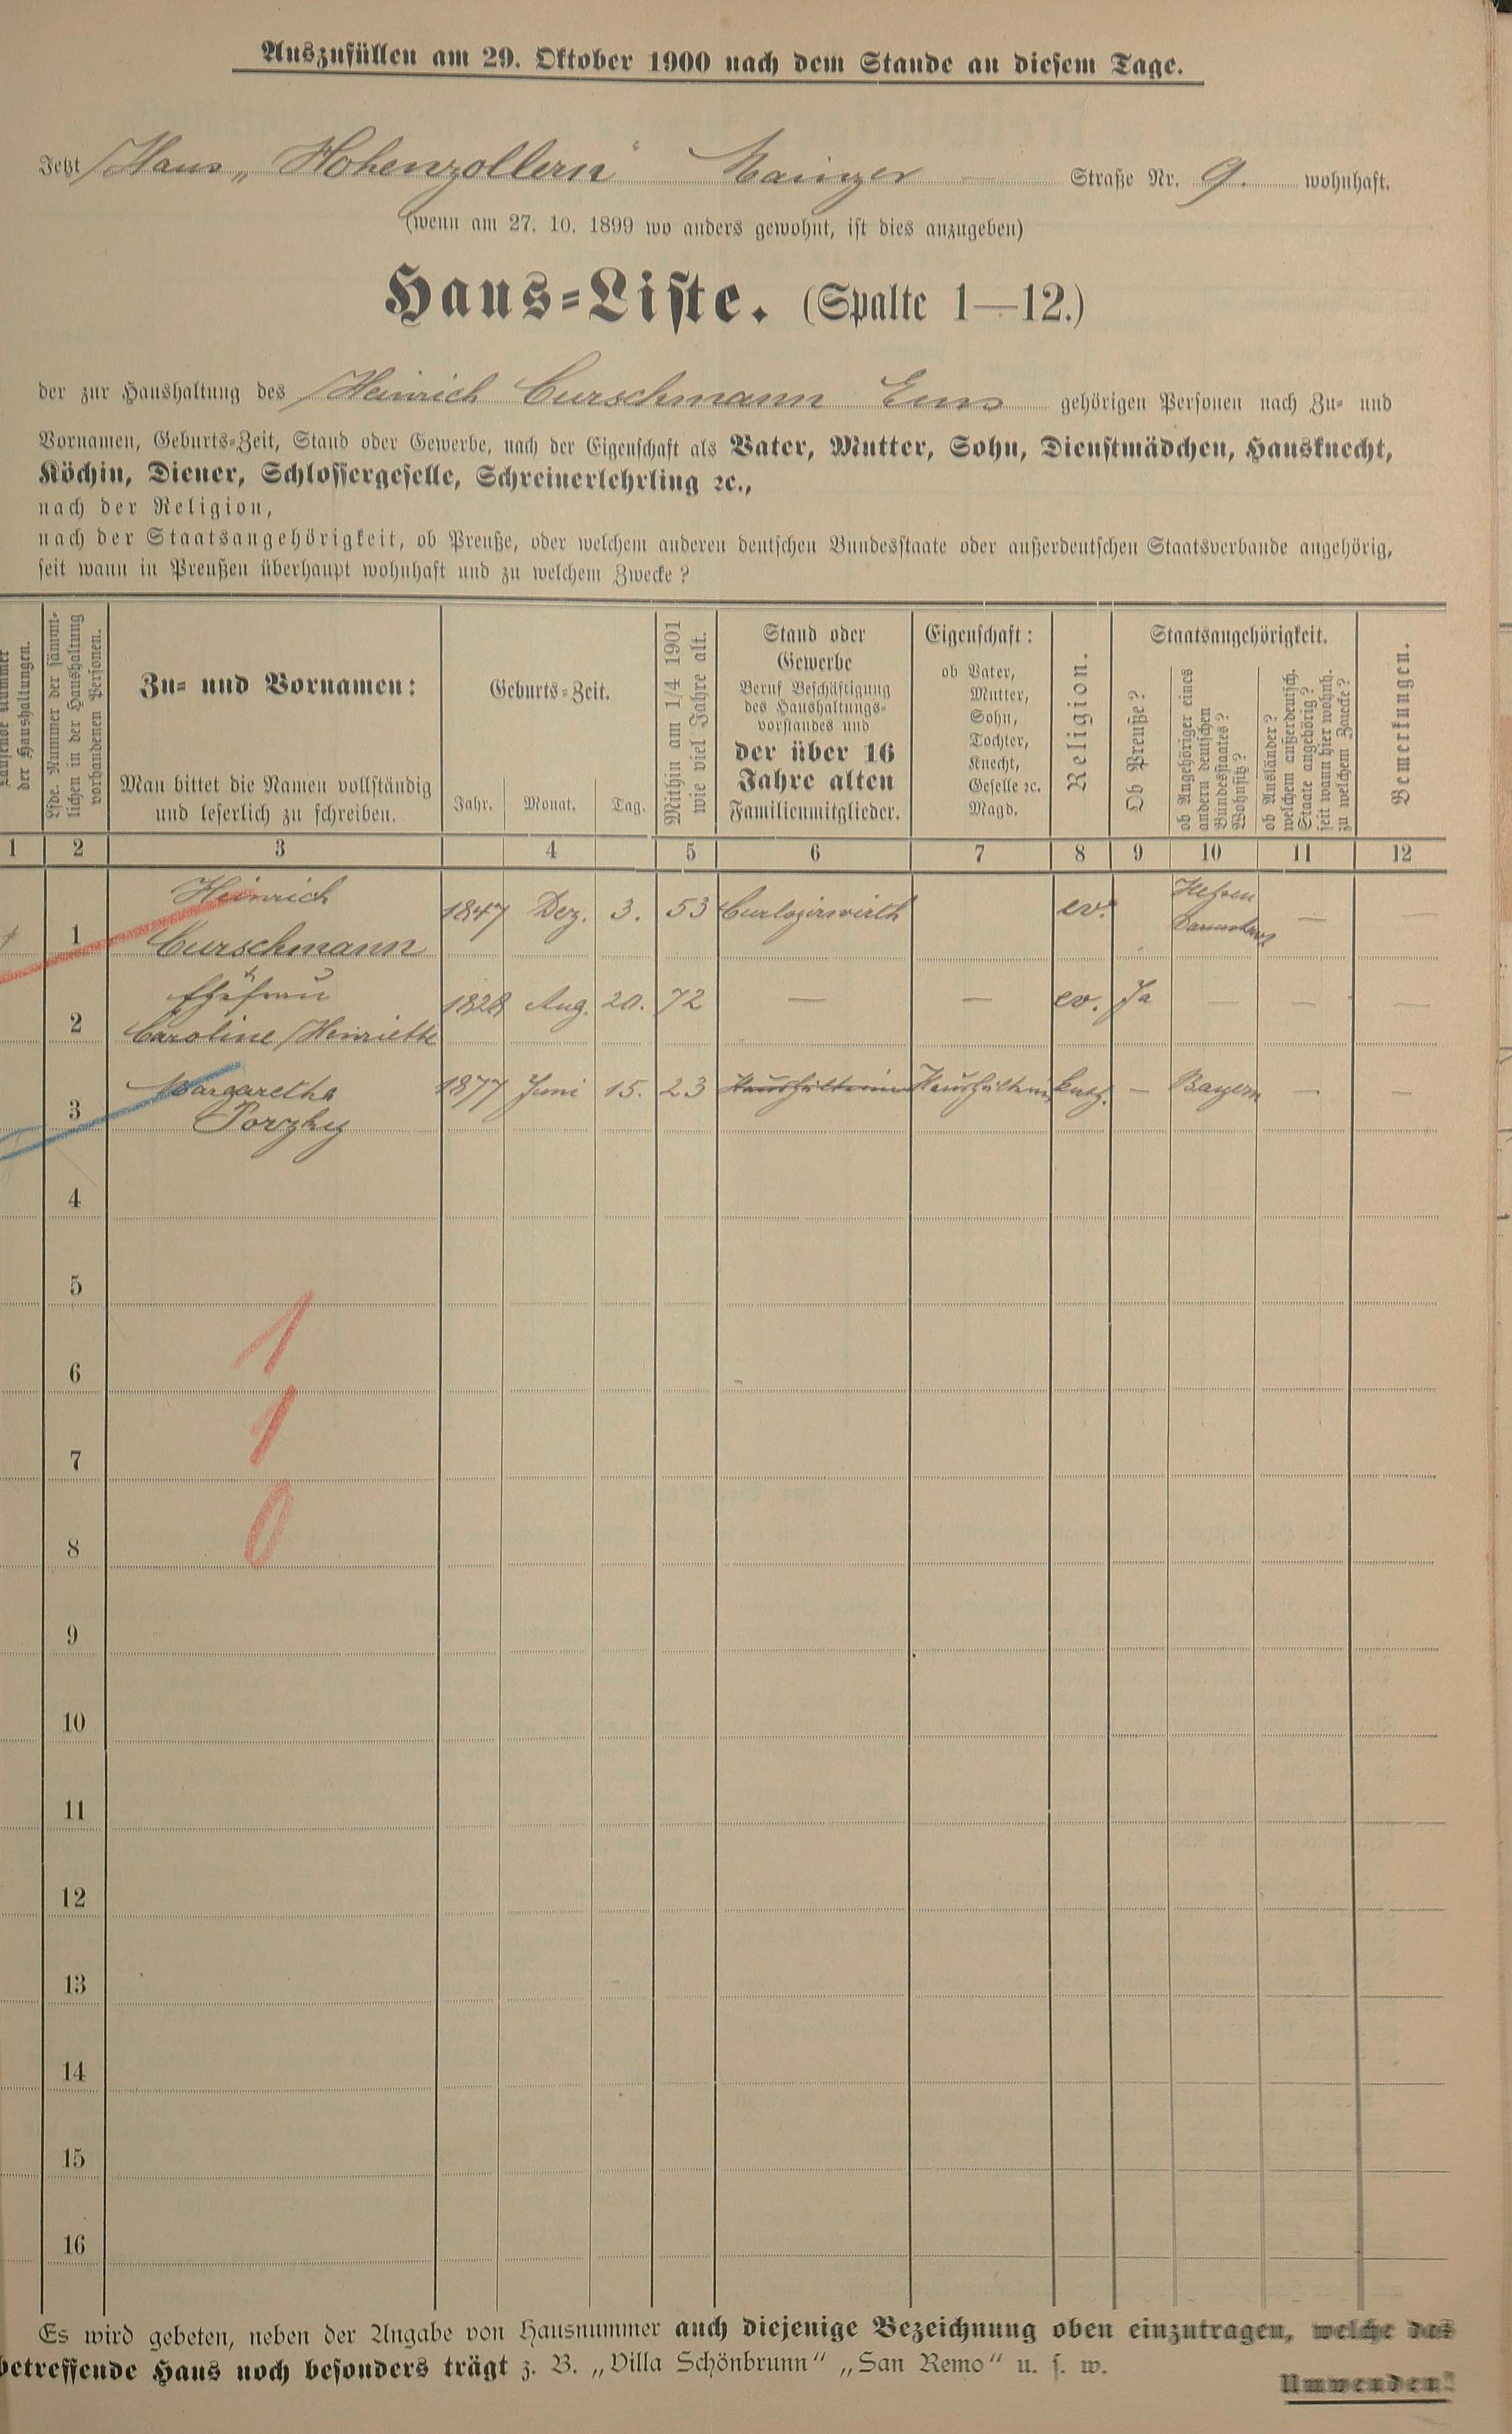 Auszufüllen am 29. Oktober 1900 nach dem Stande an diesem Tage.
Jetzt Haus „Hohenzollern“ Mainzer — Straße Nr. 9. wohnhaft.
(wenn am 27. 10. 1899 wo anders gewohnt, ist dies anzugeben)
Haus-Liste. (Spalte 1—12.)
der zur Haushaltung des Heinrich Curschmann Ems gehörigen Personen nach Zu- und
Vornamen, Geburts-Zeit, Stand oder Gewerbe, nach der Eigenschaft als Vater, Mutter, Sohn, Dienstmädchen, Hausknecht,
Köchin, Diener, Schlossergeselle, Schreinerlehrling ꝛc.,
nach der Religion,
nach der Staatsangehörigkeit, ob Preuße, oder welchem anderen deutschen Bundesstaate oder außerdeutschen Staatsverbande angehörig,
seit wann in Preußen überhaupt wohnhaft und zu welchem Zwecke?
Laufende Nummer
der Haushaltungen.
Lfde. Nummer der sämmt-
lichen in der Haushaltung
vorhandenen Personen.
Zu- und Vornamen:
Man bittet die Namen vollständig
und leserlich zu schreiben.
Geburts-Zeit.
Jahr. Monat. Tag.
Mithin am 1/4 1901
wie viel Jahre alt.
Stand oder
Gewerbe
Beruf Beschäftigung
des Haushaltungs-
vorstandes und
der über 16
Jahre alten
Familienmitglieder.
Eigenschaft:
ob Vater,
Mutter,
Sohn,
Tochter,
Knecht,
Geselle ꝛc.
Magd.
Religion.
Staatsangehörigkeit.
Ob Preuße?
ob Angehöriger eines
andern deutschen
Bundesstaates?
Wohnsitz?
ob Ausländer?
welchem außerdeutsch.
Staate angehörig?
seit wann hier wohnh.
zu welchem Zwecke?
Bemerkungen.
1 2 3 4 5 6 7 8 9 10 11 12
Heinrich
1 Curschmann 1847 Dez. 3. 53 Curlogirwirth ev. Hessen — —
Darmstadt
Ehefrau
2 Caroline Henriette 1828 Aug. 20. 72 — — ev. Ja — — —
Margaretha
3 Porzky 1877 Juni 15. 23 Haushälterin Haushälterin kath. — Bayern — —
4
5
1
6
1
7
0
8
9
10
11
12
13
14
15
16
Es wird gebeten, neben der Angabe von Hausnummer auch diejenige Bezeichnung oben einzutragen, welche das
betreffende Haus noch besonders trägt z. B. „Villa Schönbrunn“ „San Remo“ u. s. w.
Umwenden!